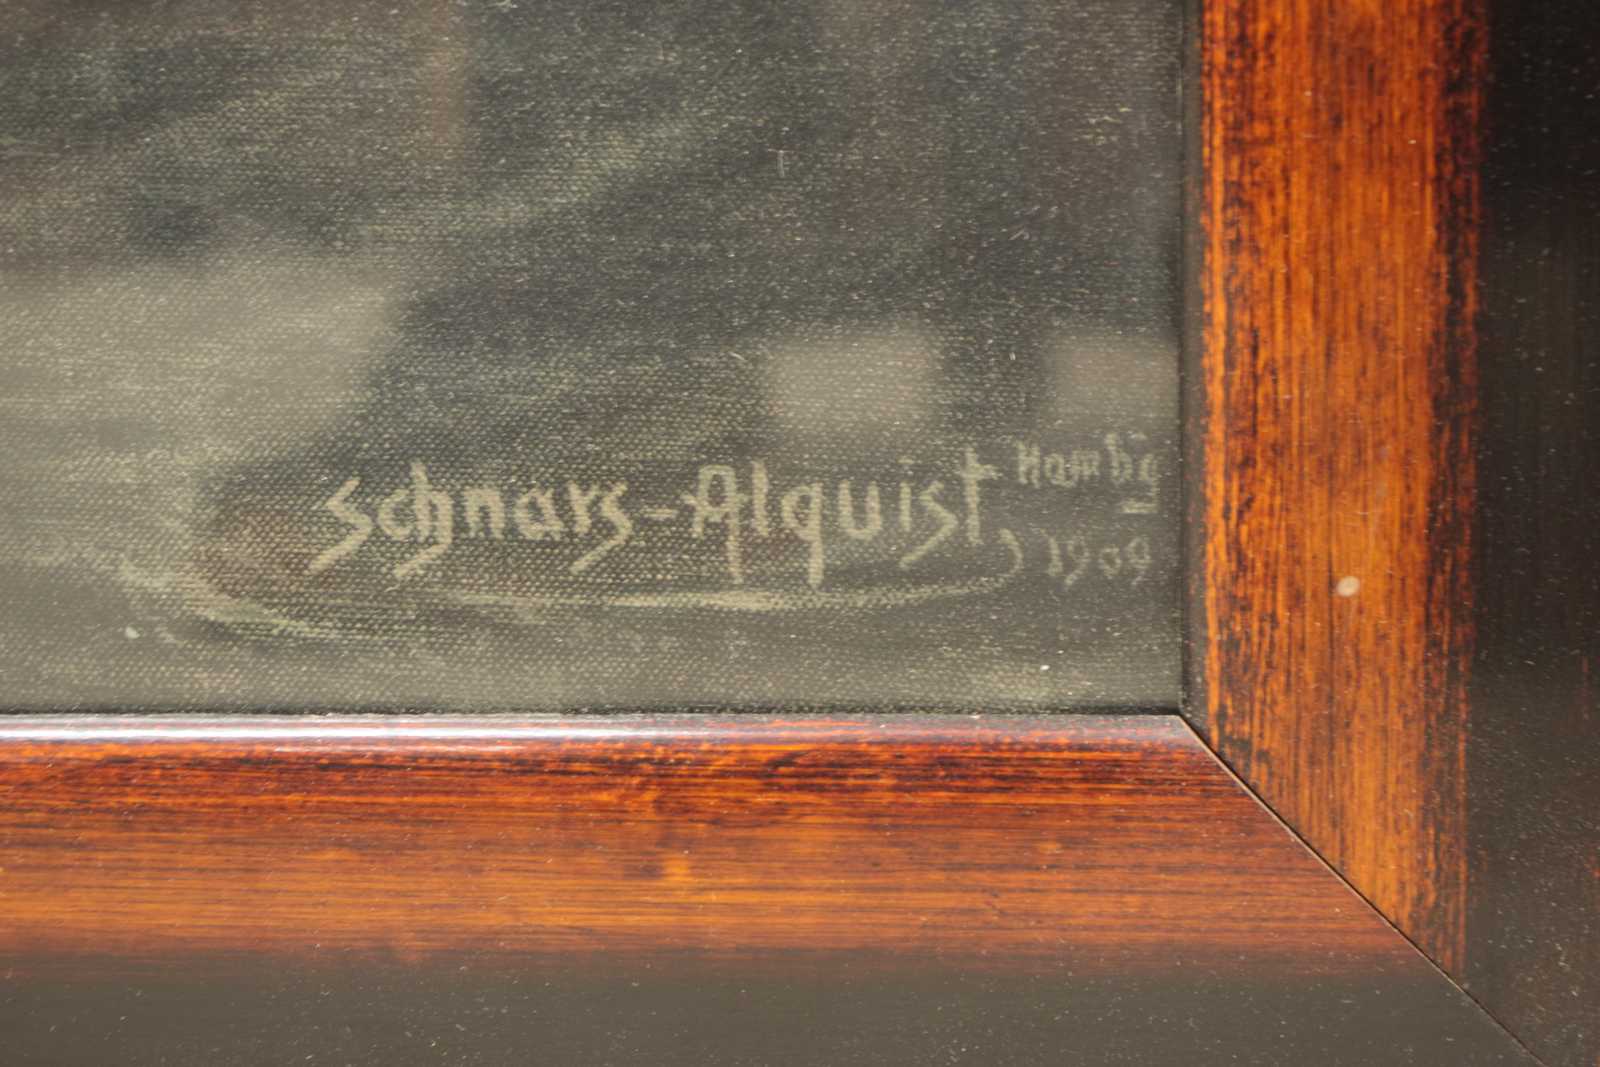 Schnars-Alquist, Hambg
1909